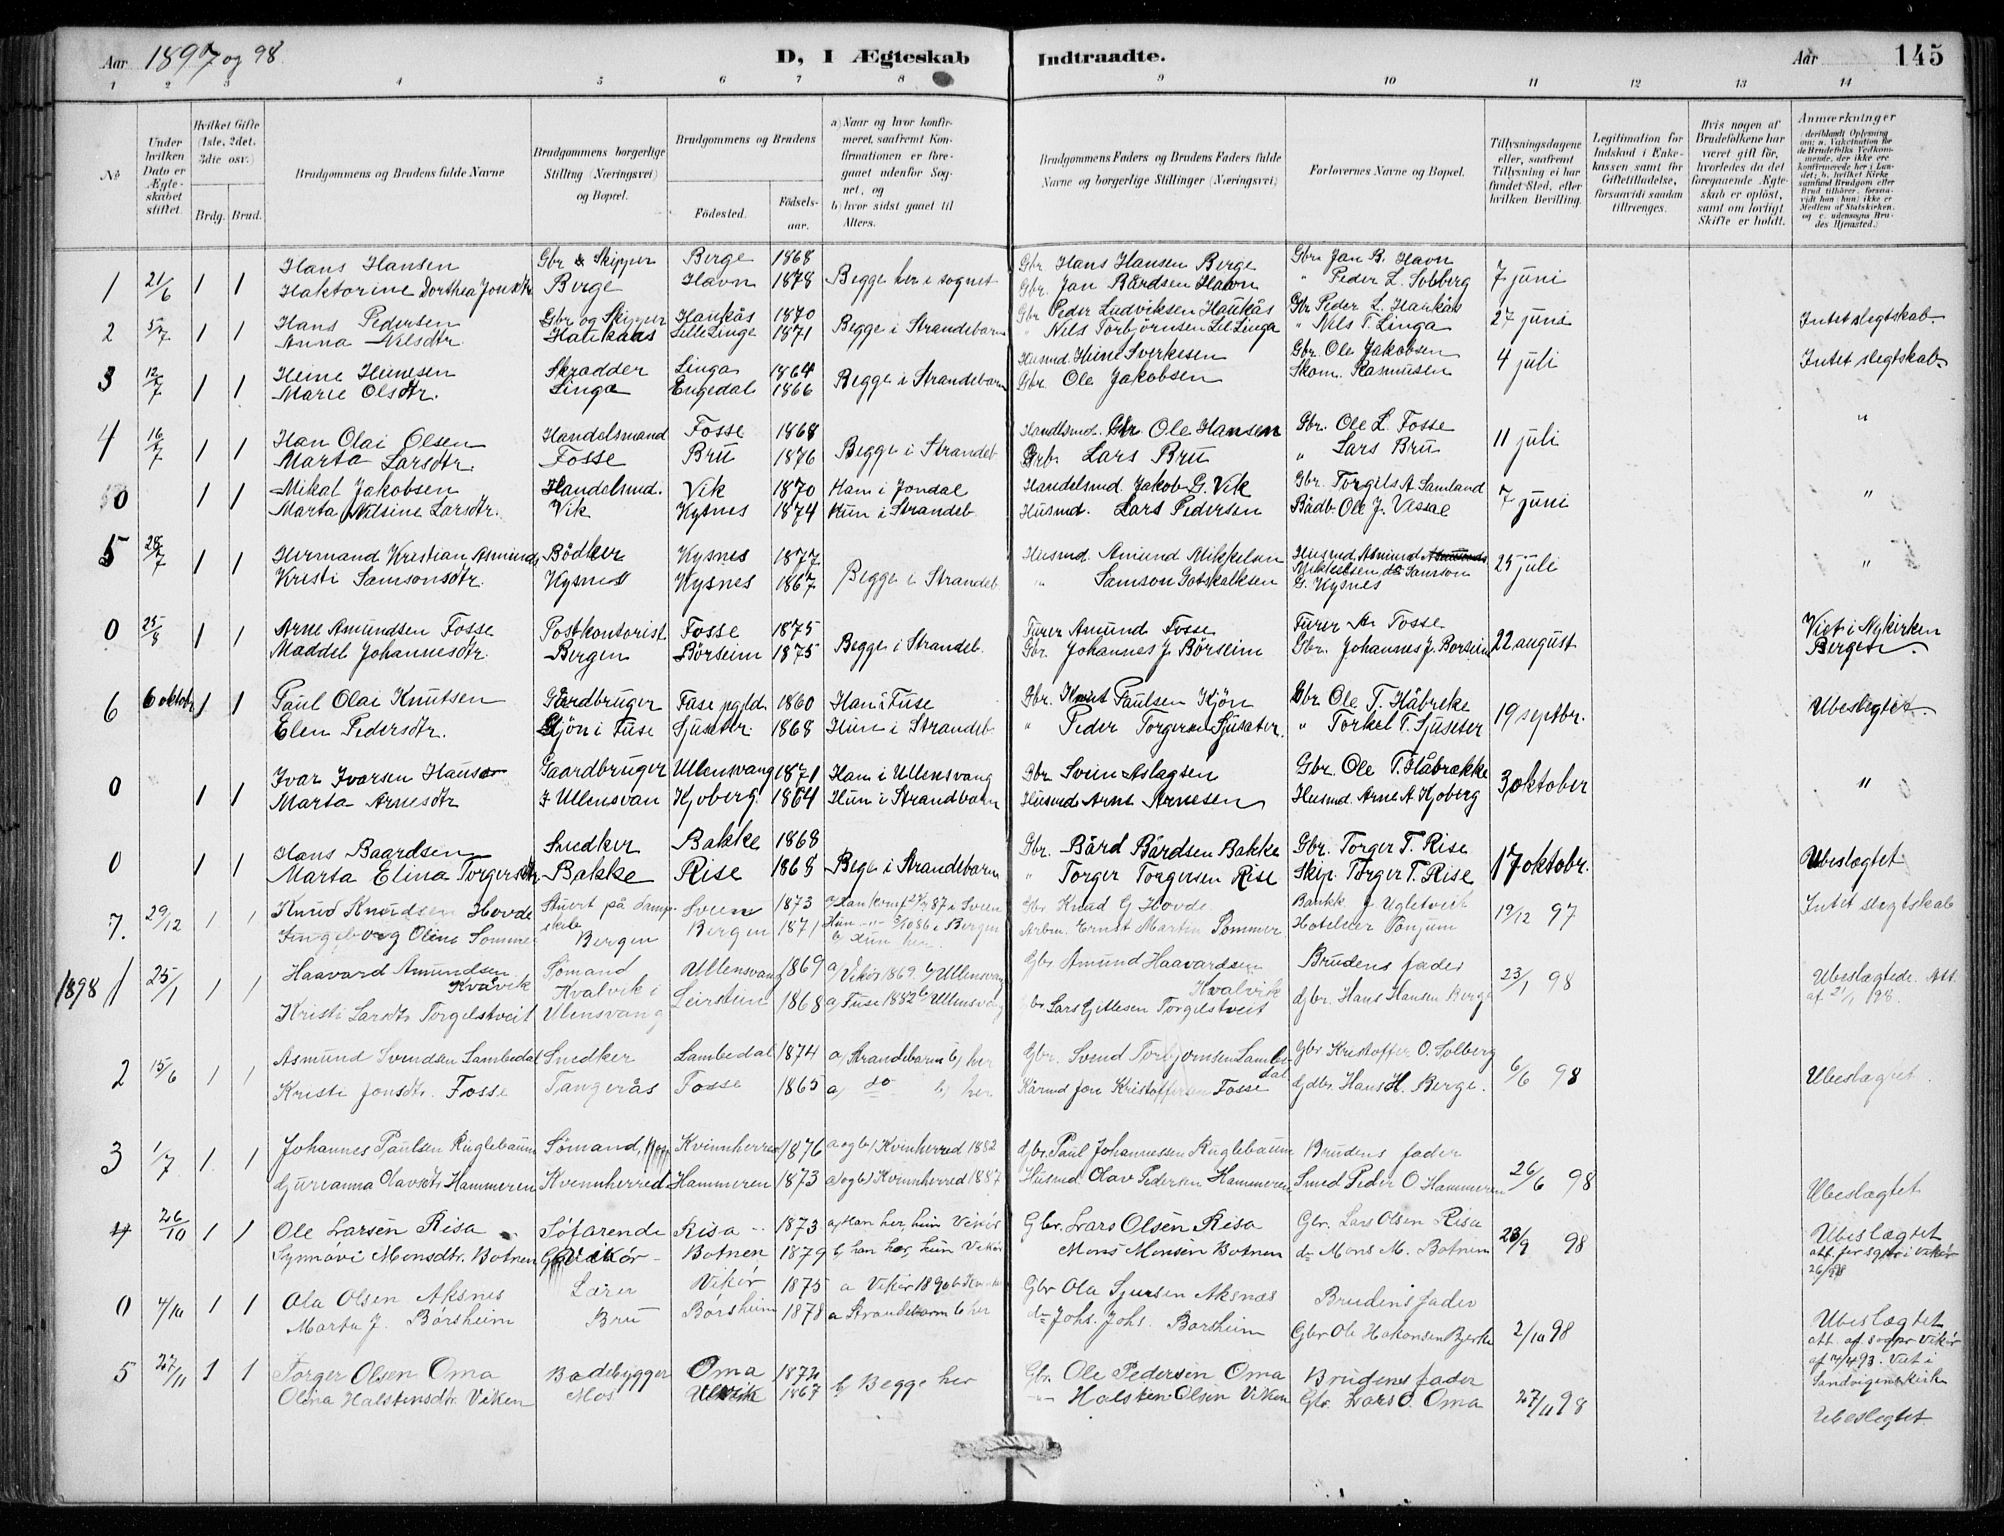 Aar 1897 og 98.
D, I Ægteskab Indtraadte.
Aar
145
1 2 3 4 5 6 7 8 9 10 11 12 13 14
No
Under hvilken Dato er Ægteskabet stiftet.
Hvilket Gifte (1ste, 2det, 3die osv.)
Brdg. Brud.
Brudgommens og Brudens fulde Navne
Brudgommens borgerlige Stilling (Næringsvei) og Bopæl.
Brudgommens og Brudens
Fødested.
Fødselsaar.
a) Naar og hvor konfirmeret, saafremt Konfirmationen er foregaaet udenfor Sognet, og b) hvor sidst gaaet til Alters.
Brudgommens Faders og Brudens Faders fulde Navne og borgerlige Stillinger (Næringsvei)
Forlovernes Navne og Bopæl.
Tillysningsdagene eller, saafremt Tillysning ei har fundet Sted, efter hvilken Bevilling.
Legitimation for Indskud i Enkekassen samt for Giftetilladelse, forsaavidt saadan tiltrænges.
Hvis nogen af Brudefolkene har været gift før, hvorledes da det foregaaende Ægteskab er opløst, samt om lovligt Skifte er holdt.
Anmærkninger
1 21/6 1 1 Hans Hansen Gbr & Skipper Berge 1868 Begge her i sognet Gbr Hans Hansen Berge Gbr. Jan B. Havn 7 juni
Haktorine Dorthea Jonsdtr Berge Havn 1878 Gbr. Jan Bårdsen Havn " Peder L. Solberg
2 5/7 1 1 Hans Pedersen Gbr og Skipper Haukås 1870 Begge i Strandebarm Gbr Peder Ludviksen Haukås Gbr Peder L. Haukås 27 juni Intet slegtskab.
Anna Nilsdtr. Haukaas Lille Linge 1871 " Nils Torbjörnsen Lil Linga " Nils T. Linga
3 12/7 1 1 Heine Heinesen Skradder Linga 1864 Begge i Strandebarm Husmd. Heine Sverkesen Gbr. Ole Jakobsen 4 juli Intet slegtskab
Marie Olsdtr. Linga Engedal 1866 Gbr. Ole Jakobsen Skom. Rasmusen
4 16/7 1 1 Han Olai Olsen Handelsmand Fosse 1868 Begge i Strandeb Handlsmd. Gbr. Ole Hansen Gbr. Ole L. Fosse 11 juli "
Marta Larsdtr. Fosse Bru 1876 Gbr. Lars Bru " Lars Bru
0 1 1 Mikal Jakobsen Handelsmd. Vik 1870 Ham i Jondal Handelsmd Jakob G. Vik Gbr. Torgils A Samland 7 juni "
Marta Nilsine Larsdtr. Vik Kysnes 1874 Hun i Strandeb. Husmd. Lars Pedersen Bådb. Ole J. Vesse
5 28/7 1 1 Hermand Kristian Asmunds Bödker Kysnes 1877 Begge i Strandeb Husmd. Amund Mikkelsen Husmd. Asmund 25 juli "
Kristi Samsonsdtr. Kysnes Kysnes 1867 " Samson Gotskalksen Mikkelsen, do Samson G. Kysnes
0 25/8 1 1 Arne Amundsen Fosse Postkontorist Fosse 1875 Begge i Strandeb. Furer Amund Fosse Furer Am Fosse 22 august Viet i Nykirken
Maddel Johannesdtr. Bergen Börseim 1875 Gbr. Johannes J. Börseim Gbr. Johannes J. Borseim Bergen.
6 6 oktobr 1 1 Paul Olai Knutsen Gårdbruger Fuse pgld. 1860 Han i Fuse Gbr. Knut Paulsen Kjön Gbr Ole T. Håbreke 19 septbr. Ubeslegtet.
Elen Pedersdtr. Kjön i Fuse Sjuseter 1868 Hun i Strandeb " Peder Torgersen Sjusæter. " Torkel T. Sjuseter
0 1 1 Ivar Ivarsen Hauso Gaardbruger Ullensvang 1871 Ham i Ullensvang Gbr. Svein Aslagsen Gbr. Ole T. Håbrække 3 oktober "
Marta Arnesdtr I Ullensvan Kjoberg 1864 Hun i Strandbarm Husmd Arne Arnesen Husmd. Arne A. Kjoberg
0 1 1 Hans Baardsen Snedker Bakke 1868 Begge i Strandebarm Gbr. Bård Bårdsen Bakke Gbr. Torger T. Rise 17 oktobr. Ubeslægtet
Marta Elina Torgersdtr Bakke Rise 1868 " Torger Torgersen Rise Skip. Torger T. Rise
7. 29/12 1 1 Knud Knudsen Hovde Stuert på dampskib Sveen 1873 Gbr. Knud G Hovde 19/12 97 Intet slegtskab
Ingeborg Oline Sommer Bergen Bergen 1871 Hun i Bergen Arbm. Ernst Martin Sommer Hoteleier Tonjum
b Hun her.
1898 1 25/1 1 1 Haavard Amundsen Kvavik Sømand Ullensvang 1869 a/ Vikör 1869. b/ Ullensvang Gbr Amund Haavardsen Kvalvik Brudens fader 23/1 98 Ubeslægtede. Att. af 21/1 98.
Kristi Larsdtr Torgelstveit Kvalvik i Ulensvang Leirstein 1868 a/ Fuse 1882 b/ Ullensvang Gbr Lars Gitlesen Torgilstveit Gbr. Hans Hansen Berge
2 15/6 1 1 Asmund Svendsen Lambedal Snedker Lambedal 1874 a) Strandebarm b) her Gbr. Svend Torbjörnsen Lambedal Gbr Kristoffer O. Solberg 6/6 98 Ubeslægtet
Kristi Jonsdtr. Fosse Tangerås Fosse 1865 a) do b) her Kårmd Jon Kristoffersen Fosse Gdbr. Hans H. Berge.
3 1/7 1 1 Johannes Paulsen Ruglebaum Sømand, Kvinnherred 1876 a og b) Kvinherred 1882 Gbr. Paul Johannessen Ruglebaum Brudens fader 26/6 98 Ubeslægtet
Gureanna Olavsdtr Hammeren Kvennherred Hammeren 1873 a) og b) Kvinnherred 1887 Husmd. Olav Pedersen Hammeren Smed Peder O Hammeren
4 26/10 1 1 Ole Larsen Risa Söfarende Risa 1873 a) Han her, hun Vikör Gbr. Lars Olsen Risa Gbr. Lars Olsen Risa 23/9 98 Ubeslægtet
Synnövi Monsdtr. Botnen Vikör Botnen 1879 b han her, hun Vikör Mons Monsen Botnen do Mons M. Botnen att. fra sgpr i Vikör 26/9 98
0 4/10 1 1 Ola Olsen Aksnes Lærer Vikör 1875 a Vikör 1890 Gbr Ola Sjursen Aksnæs Brudens fader 2/10 98 Ubeslægtet
Marta J. Börsheim Bru Börsheim 1878 a Strandebarm b her do Johs. Johs. Borsheim Gbr Ole Hakonsen Bjerke att. af sogpr Vikör af 14/4 93. Viet i Sandvigens kirke
5 27/11 1 1 Torger Olsen Oma Baadebygger Oma 1872 b) Begge her Gbr. Ole Pedersen Oma Brudens fader 27/11 98 Ubeslegtet.
Olina Halstensdtr. Viken Mos Ulvik 1867 " Halsten Olsen Viken Gbr. Lars O. Oma